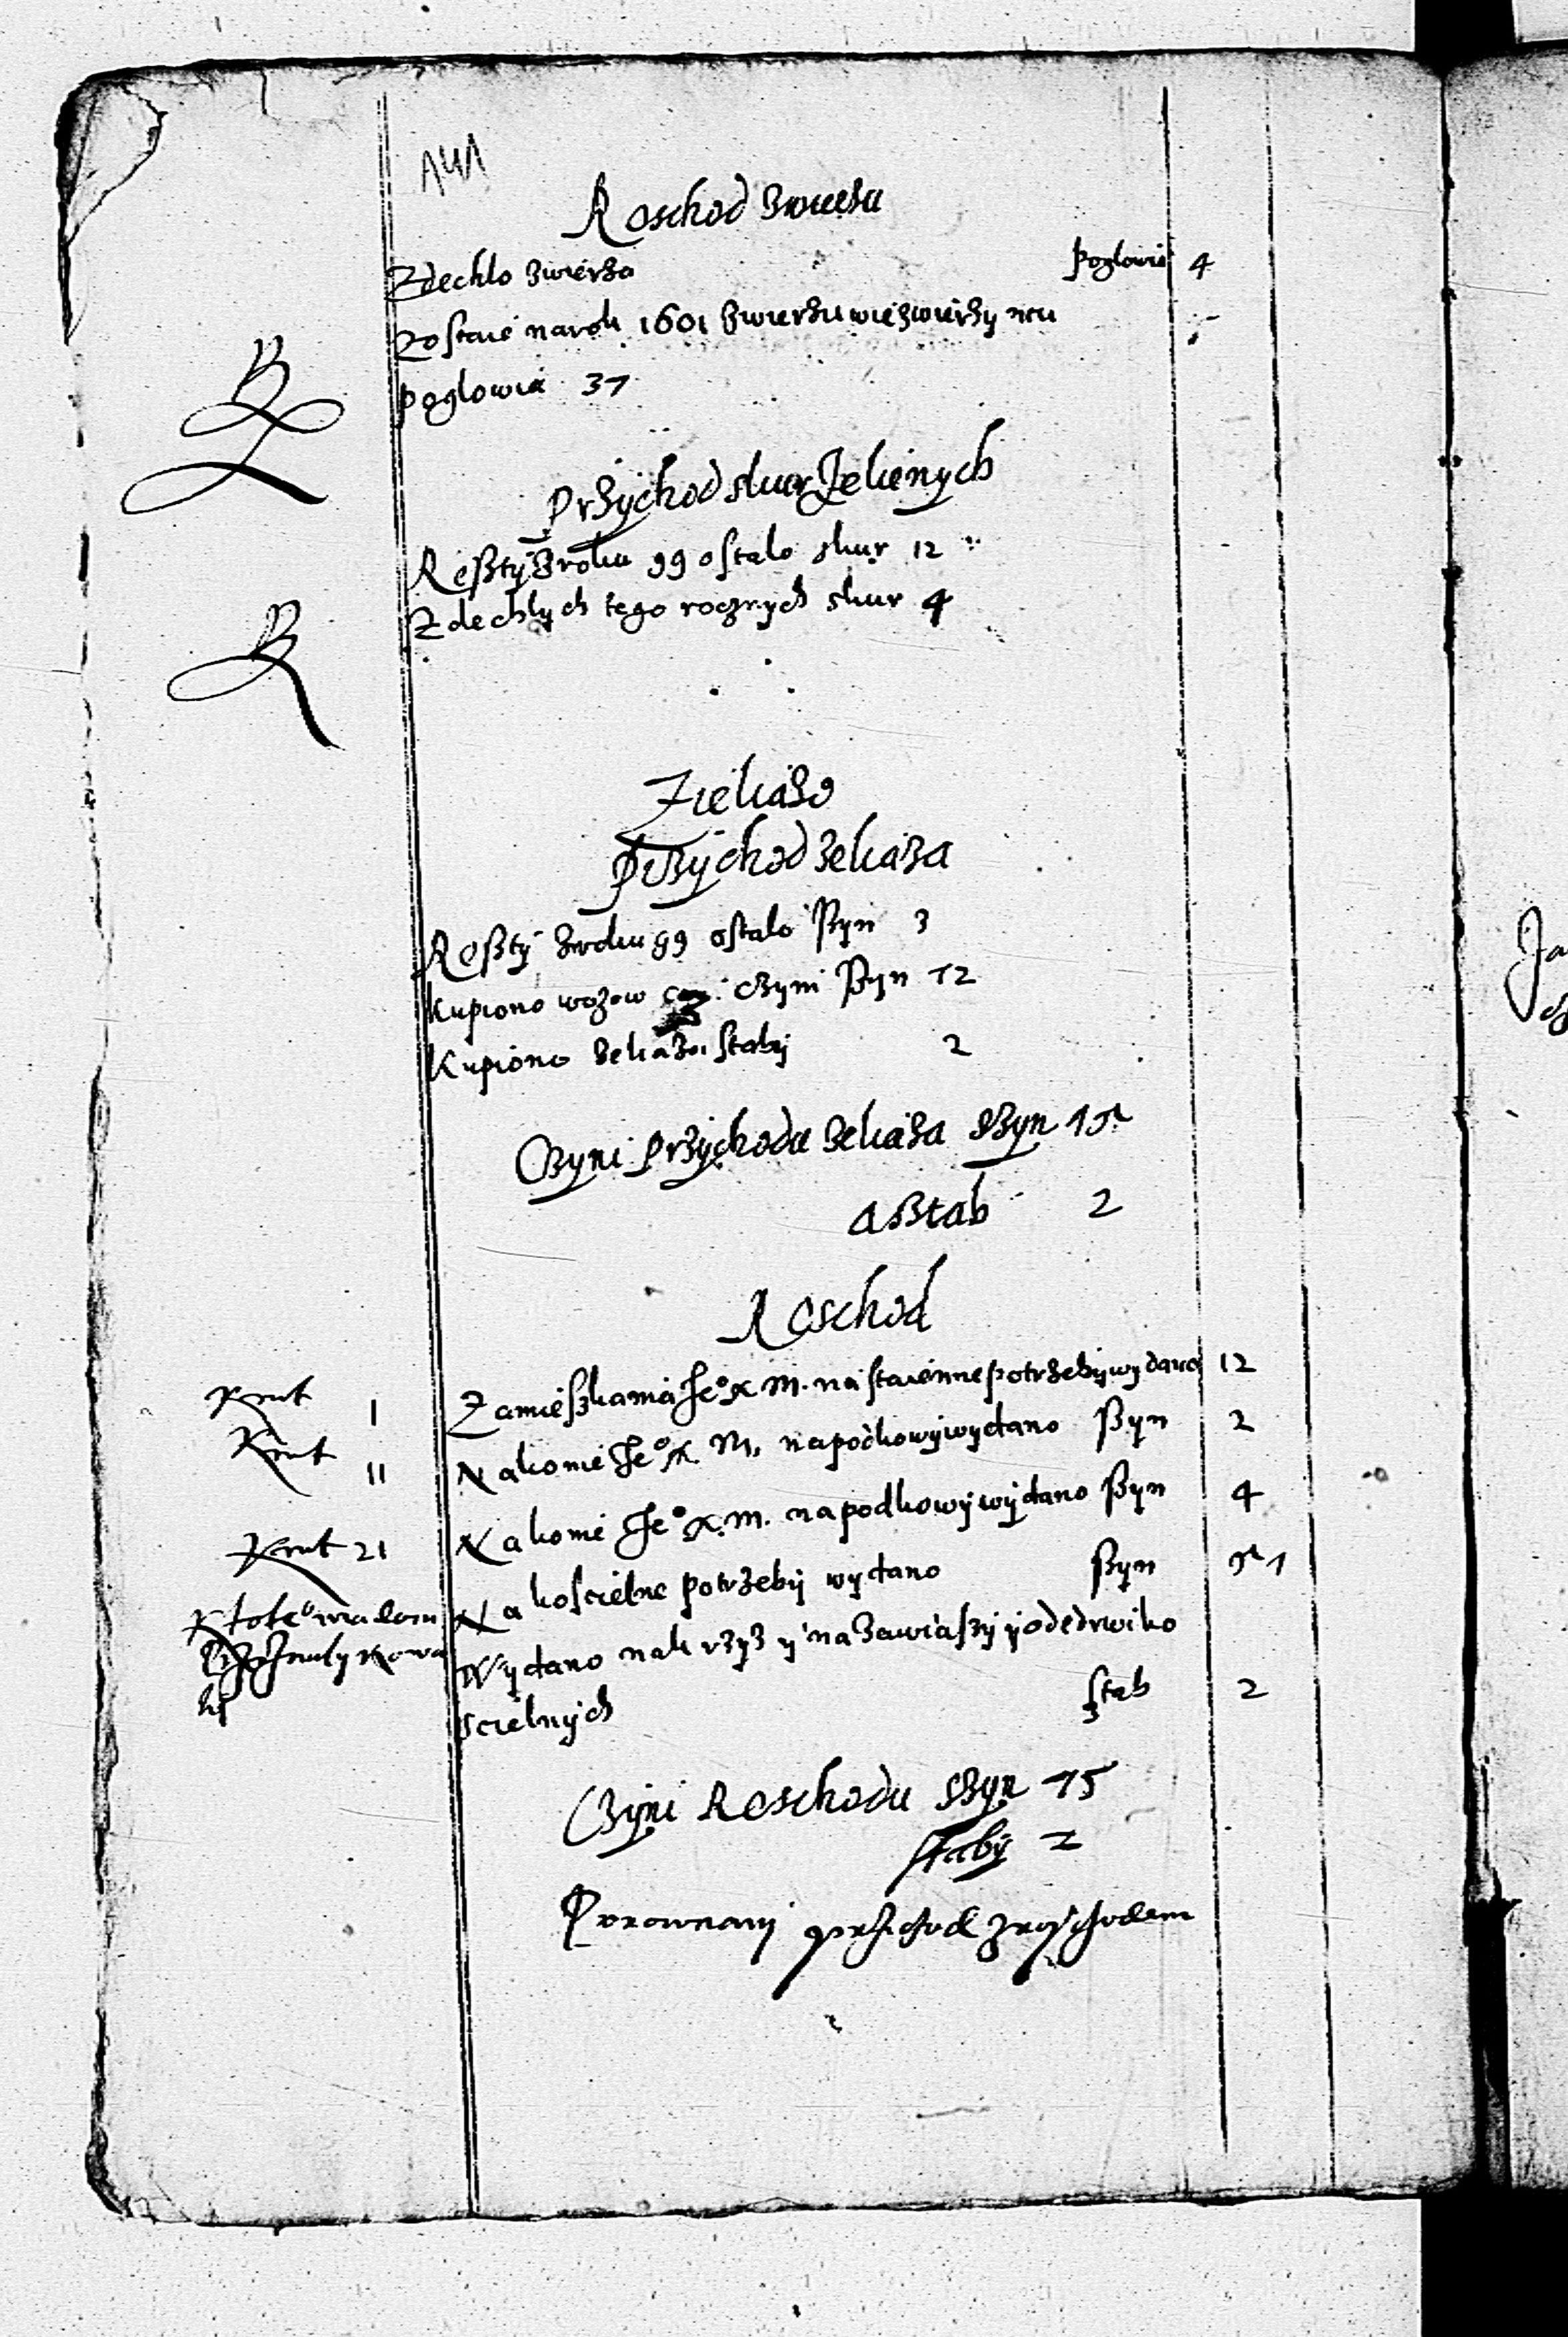 141
Roschod zwieża
Zdechlo zwierża pogłowia 4
zostaie narok 1601 zwierzu wiezwierzyncu
pogłowia 37
R
Przychod skur Jelienych
Reszty zroku 99 ostalo skur 12
Zdechlych tego rocznych skur 4
R
Zieliazo
Przychod zeliaza
Reszty zroku 99 ostalo szyn 3
Kupiono wozow czyni szyn 12
Kupiono zeliaza staby 2
Czyni przychodu zeliaza szyn 15
a sztab 2
Roschod
Kwit 1 Zamieszkania Je° X M. na staienne potrzeby wydano 12
Kwit 11 Nakonie Je° X M. napodkowy wydano szyn 2
Kwit 21 Nakonie Je° X. M. napodkowy wydano szyn 4
Na koscielne potrzeby wydano szyn
Wydano nak rzyz y nazawiaszy y odedrwiko
scielnych sztab 2
Czyni Roschodu szyn 15
staby 2
Porownany przichod zroschodem